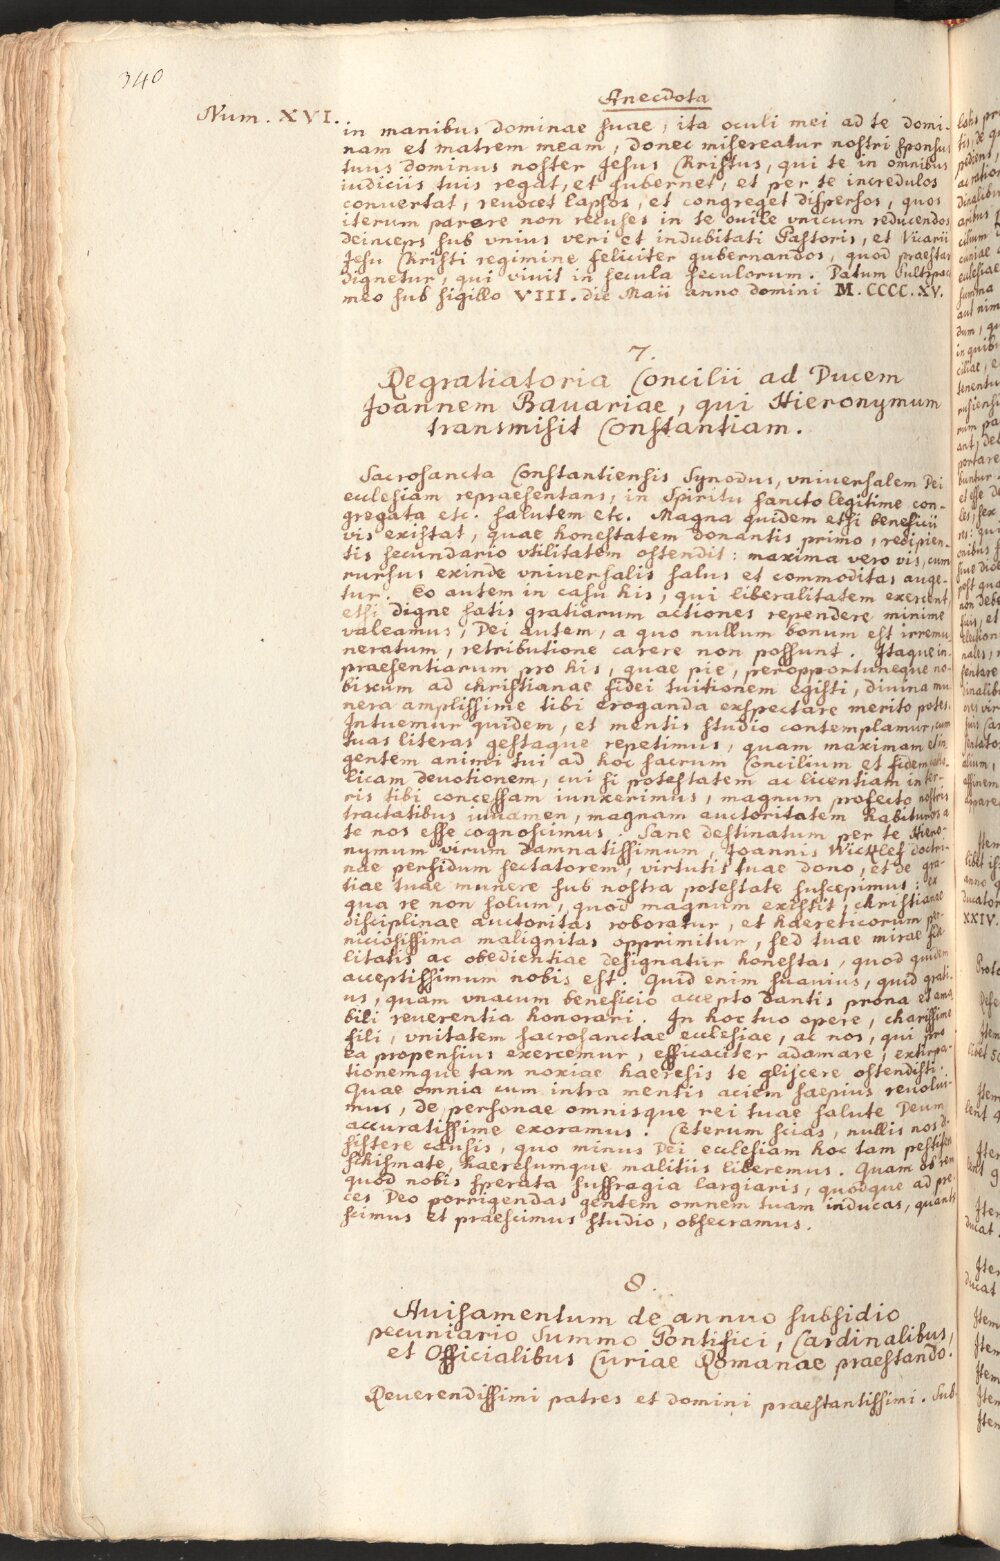 340
Anecdota
Num. XVI.
in manibus dominae suae, ita oculi mei ad te domi-
nam et matrem meam, donec misereatur nostri sponsus
tuus dominus noster Jesus Christus, qui te in omnibus
iudiciis tuis regat, et gubernet, et per te incredulos
conuertat, reuocet lapsos, et congreget dispersos, quos
iterum parere non recuses in te ouile vnicum reducendos
deinceps sub vnius veri et indubitati Pastoris, et Vicarii
Jesu Christi regimine feliciter gubernandos, quod praestare
dignetur, qui viuit in secula seculorum. Datum
meo sub sigillo VIII. die Maii anno domini M.CCCC.XV.
7.
Regratiatoria Concilii ad Ducem
Joannem Bauariae, qui Hieronymum
transmisit Constantiam.
Sacrosancta Constantiensis Synodus, vniuersalem Dei
ecclesiam repraesentans, in Spiritu sancto legitime con-
gregata etc. salutem etc. Magna quidem etsi beneficii
vis existat, quae honestatem donantis primo, recipien-
tis secundario vtilitatem ostendit: maxima vero vis, cum
rursus exinde vniuersalis salus et commoditas auge-
tur. Eo autem in casu his, qui liberalitatem exercent,
etsi digne satis gratiarum actiones rependere minime
valeamus, Dei autem, a quo nullum bonum est irremu
neratum, retributione carere non possunt. Itaque in-
praesentiarum pro his, quae pie, peropportuneque no-
biscum ad christianae fidei tuitionem egisti, diuina mu
nera amplissime tibi eroganda exspectare merito potes.
Intuemur quidem, et mentis studio contemplamur, cum
tuas literas gestaque repetimus, quam maximam et in
gentem animi tui ad hoc sacrum Concilium et fidem catho
licam deuotionem, cui si potestatem ac licentiam in ter-
ris tibi concessam iunxerimus, magnum profecto nostris
tractatibus iuuamen, magnam auctoritatem habituros a
te nos esse cognoscimus. Sane destinatum per te Hiero-
nymum virum damnatissimum, Joannis Wicklef doctri-
nae persidum sectatorem, virtutis tuae dono, et de gra-
tiae tuae munere sub nostra potestate suscepimus: ex
qua re non solum, quod magnum existit, christianae
disciplinae auctoritas roboratur, et haereticorum per-
niciosissima malignitas opprimitur, sed tuae mirae fide
litatis ac obedientiae designatur honestas, quod quidem
acceptissimum nobis est. Quid enim suauius, quid grati-
us, quam vnacum beneficio accepto dantis prona et ama
bili reuerentia honorari. In hoc tuo opere, charissime
fili, vnitatem sacrosanctae ecclesiae, ac nos, qui pro
ea propensius exercemur, efficaciter adamare, extirpa-
tionemque tam noxiae haeresis te gliscere ostendisti.
Quae omnia cum intra mentis aciem saepius reuolui-
mus, de personae omnisque rei tuae salute Deum
accuratissime exoramus. Ceterum scias, nullis nos de-
sistere causis, quo minus Dei ecclesiam hoc tam pestifero
schismate, haeresumque malitiis liberemus. Quam ob rem
quod nobis sperata suffragia largiaris, quodque ad pre-
ces Deo porrigendas gentem omnem tuam inducas, quanto
scimus et praescimus studio, obsecramus.
8.
Auisamentum de annuo subsidio
pecuniario Summo Pontifici, Cardinalibus,
et Officialibus Curiae Romanae praestando.
Reuerendissimi patres et domini praestantissimi. Sub-